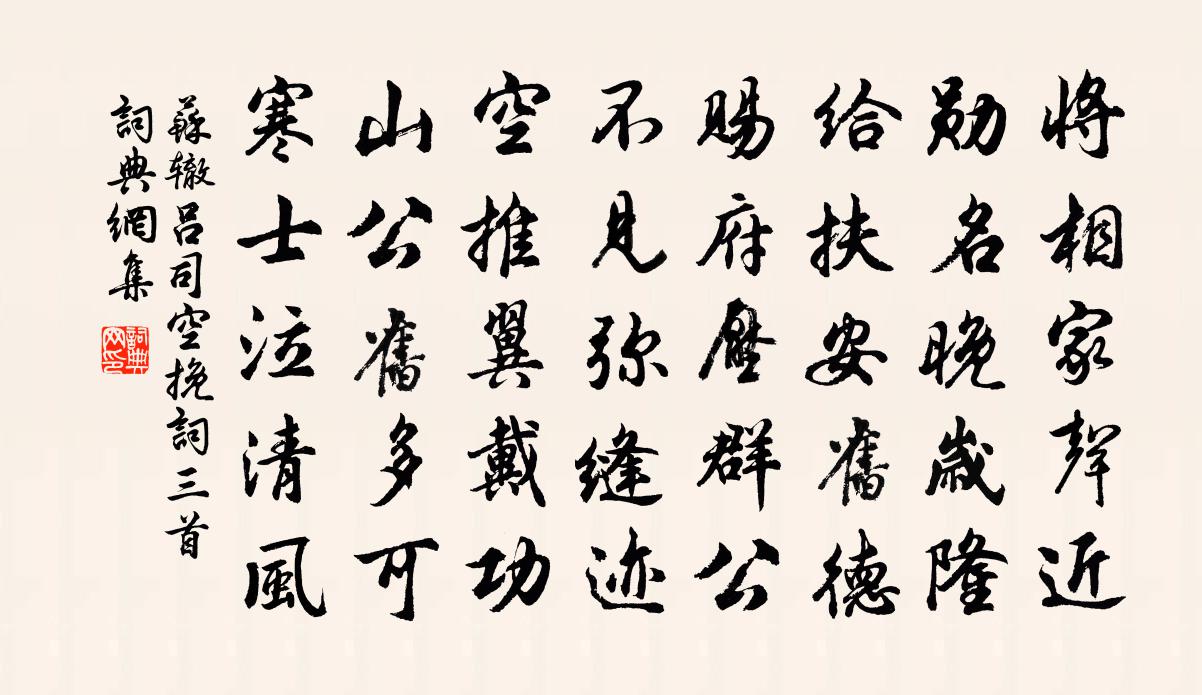 將相家聲近
勛名晚歲隆
給扶安舊德
賜府壓群公
不見弥縫迹
空推翼戴功
山公舊多可
寒士泣清風
蘇辙吕司空挽詞三首
詞典網集
詞典网印